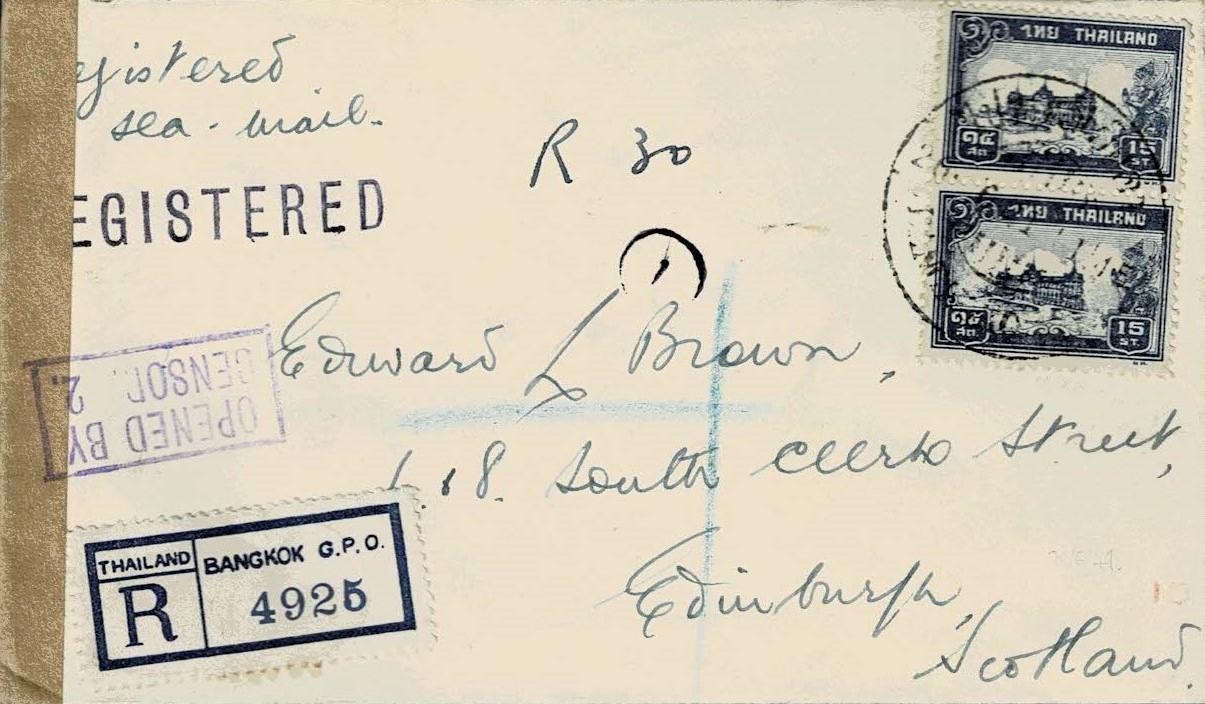 egistered
sea-mail.
R 30
EGISTERED
ไทย THAILAND
๑๕ สต. 15 ST.
ไทย THAILAND
๑๕ สต. 15 ST.
Edward L Brown,
18. South Clerk Street,
Edinburgh,
Scotland.
OPENED BY
CENSOR. 2.
THAILAND BANGKOK G.P.O.
R 4925